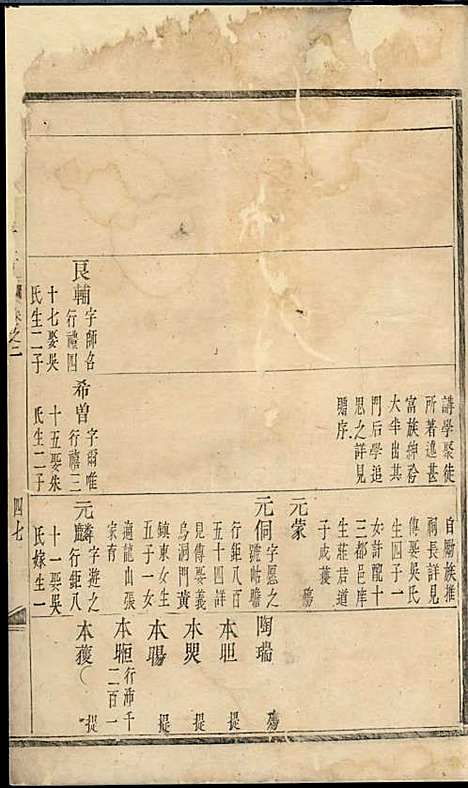 良輔
字師名
行禮四
十七娶吳
氏生二子
講學聚徒
所著述甚
富族紳耆
大率出其
門后學追
思之詳見
贈序
希曾
字爾唯
行禧三
十五娶朱
氏生二子
自勵族推
祠長詳見
傳娶吳氏
生四子一
女許龍十
三都邑庠
生莊君道
子成
元蒙 殤
元侗
字愿之
號帖瞻
行鉅八百
五十四詳
見傳娶義
烏洞門黃
鎮東女生
五子一女
適龍山張
家有
元麟
字遊之
行鉅八
十一娶吳
氏嫁生一
陶瑞 殤
本
本
本
本
行沛千
二百一
本蔆
卷之二
四七